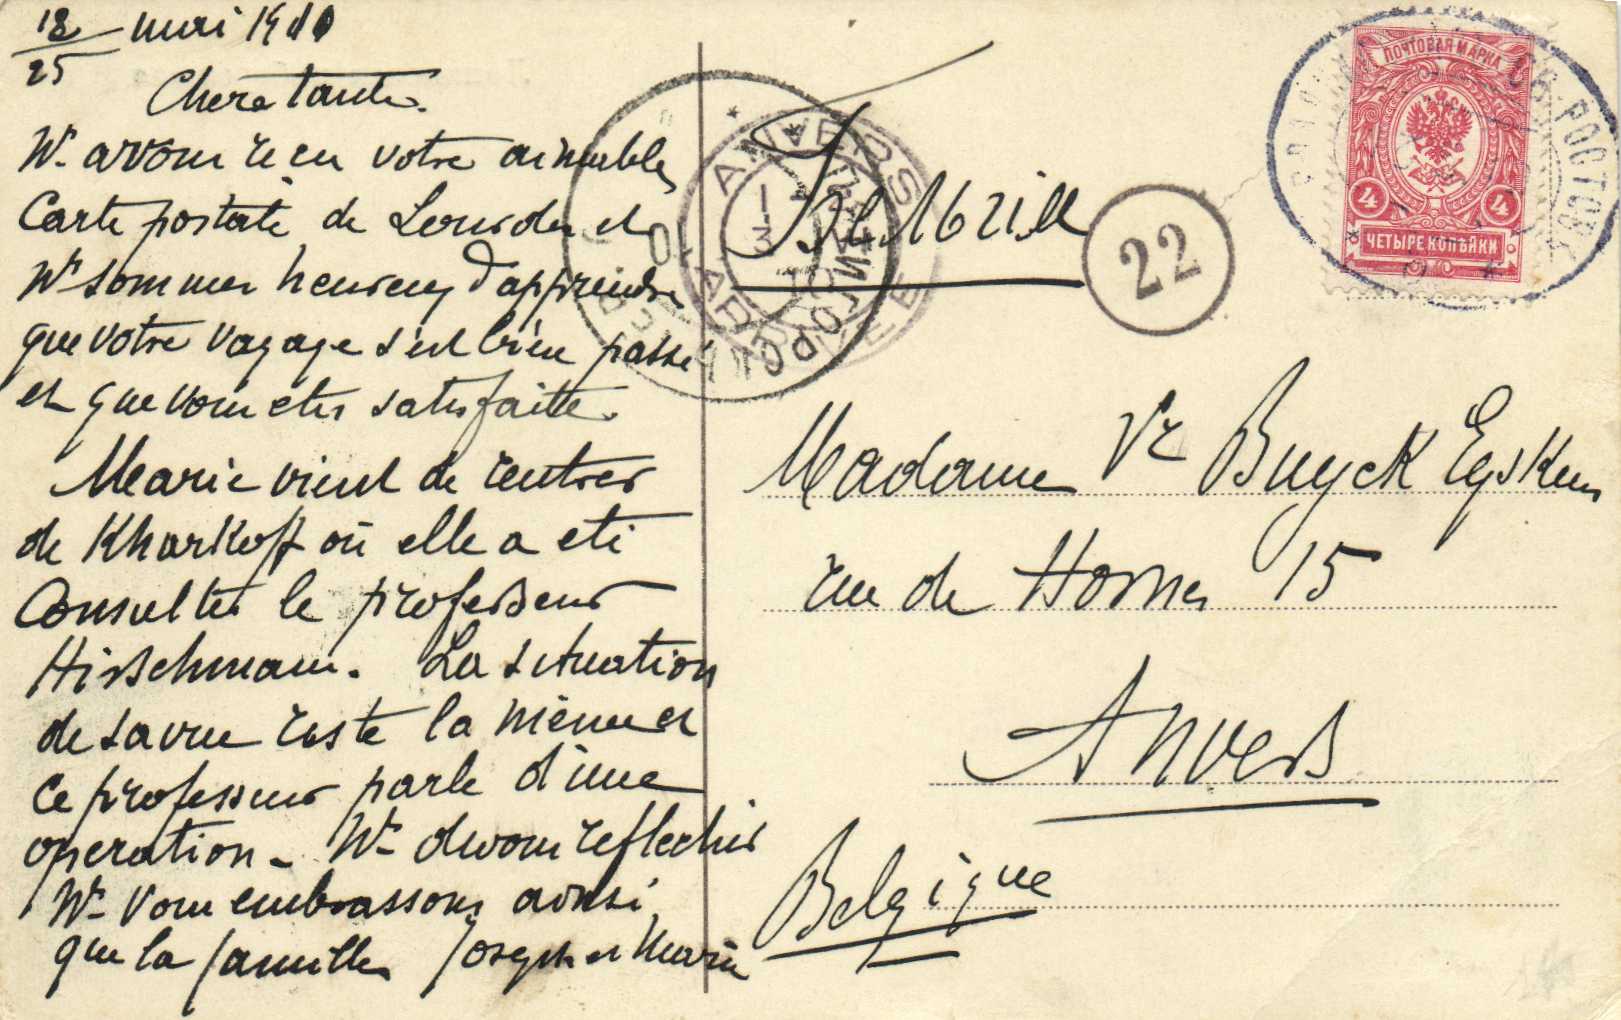 18/25 mai 1910
Chere tante.
Ns avons recu votre aimable
Carte postale de Lourdes et
Ns sommes heureux d'apprendre
que votre voyage s'est bien passé
et que vous etes satisfaite.
Marie vient de rentrer
de Kharkoff où elle a eté
Consulter le professeur
Hirschmann. La situation
de sa vue reste la même et
ce professeur parle d'une
operation - Ns devons reflechir
Ns vous embrassons ainsi
que la famille Joseph et Marie
22
ПОЧТОВАЯ МАРКА
4 4
ЧЕТЫРЕ КОПѢЙКИ
РОСТОВЪ
ANVERS
ARRIVEE
Madame Ve Buyck Eyskens
rue de Hornes 15
Anvers
Belgique